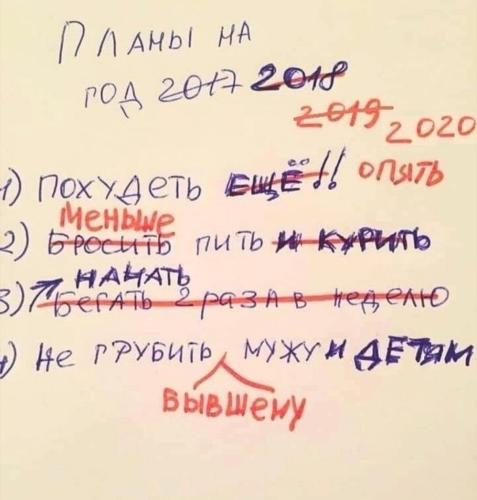 ПЛАНЫ НА
ГОД 2017 2018
2019 2020
1) ПОХУДЕТЬ ЕЩЁ!! ОПЯТЬ
МЕНЬШЕ
2) БРОСИТЬ ПИТЬ И КУРИТЬ
НАЧАТЬ
3) БЕГАТЬ 2 РАЗА В НЕДЕЛЮ
4) НЕ ГРУБИТЬ МУЖУ И ДЕТЯМ
БЫВШЕМУ